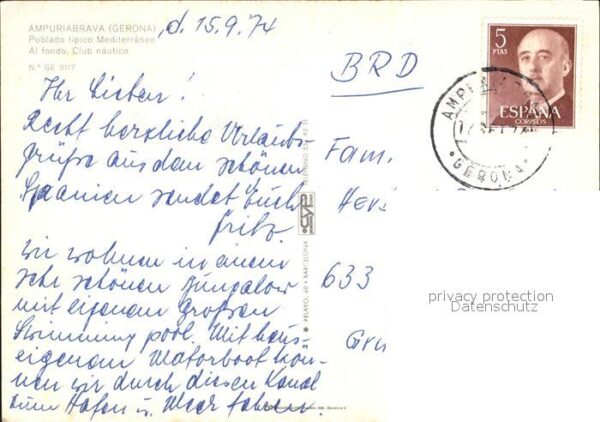 AMPURIABRAVA (GERONA)
Poblado típico Mediterráneo
Al fondo, Club náutico
N.º GE 3117
d. 15.9.74
Ihr Lieben!
Recht herzliche Urlaubs-
grüße aus dem schönen
Spanien sendet Euch
Fritz
Wir wohnen in einem
sehr schönen Bungalow
mit eigenem Großen
Swimming pool. Mit haus-
eigenem Motorboot kön-
nen wir durch diesen Kanal
zum Hafen u. Meer fahren
CYP
PELAYO, 60 • BARCELONA
BRD
Fam.
633
5
PTAS
ESPAÑA
CORREOS
GERONA
privacy protection
Datenschutz